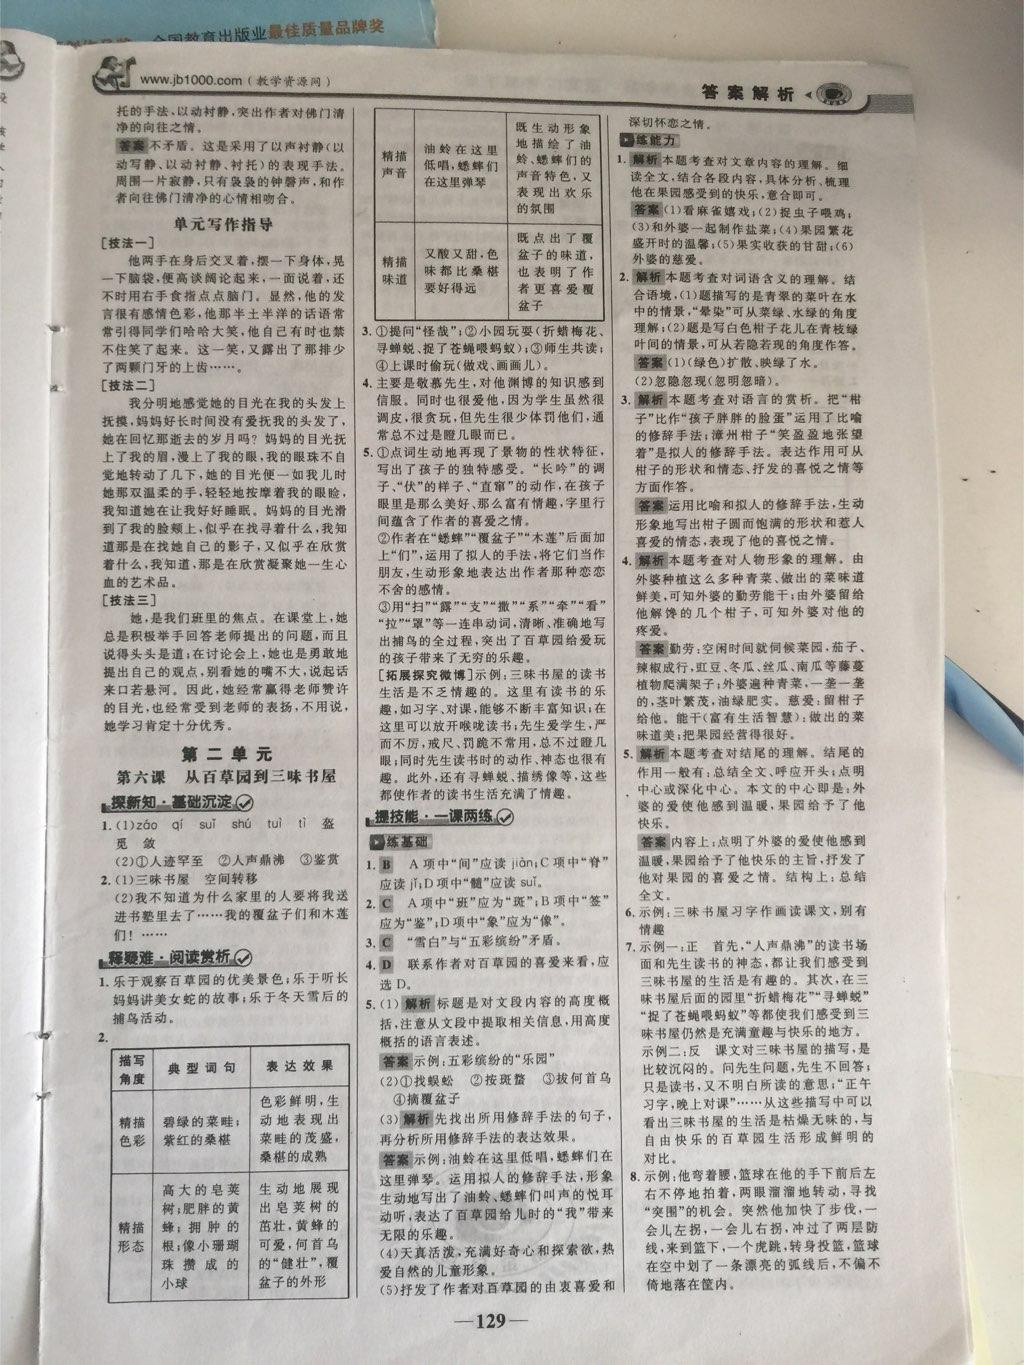 全国教育出版业最佳质量品牌奖
www.jb1000.com(教学资源网)
答案解析
托的手法,以动衬静,突出作者对佛门清
净的向往之情。
答案 不矛盾。这是采用了以声衬静(以
动写静、以动衬静、衬托)的表现手法。
周围一片寂静,只有袅袅的钟磬声,和作
者向往佛门清净的心情相吻合。
单元写作指导
[技法一]
他两手在身后交叉着,摆一下身体,晃
一下脑袋,便高谈阔论起来,一面说着,还
不时用右手食指点点脑门。显然,他的发
言很有感情色彩,他那半土半洋的话语常
常引得同学们哈哈大笑,他自己有时也禁
不住笑了起来。这一笑,又露出了那排少
了两颗门牙的上齿……。
[技法二]
我分明地感觉她的目光在我的头发上
抚摸,妈妈好长时间没有爱抚我的头发了,
她在回忆那逝去的岁月吗?妈妈的目光抚
上了我的眉,漫上了我的眼,我的眼珠不自
觉地转动了几下,她的目光便一如我儿时
她那双温柔的手,轻轻地按摩着我的眼睑,
我知道她在让我好好睡眠。妈妈的目光滑
到了我的脸颊上,似乎在找寻着什么,我知
道那是在找她自己的影子,又似乎在欣赏
着什么,我知道,那是在欣赏凝聚她一生心
血的艺术品。
[技法三]
她,是我们班里的焦点。在课堂上,她
总是积极举手回答老师提出的问题,而且
说得头头是道;在讨论会上,她也是勇敢地
提出自己的观点,别看她的嘴不大,说起话
来口若悬河。因此,她经常赢得老师赞许
的目光,也经常受到老师的表扬,不用说,
她学习肯定十分优秀。
第二单元
第六课 从百草园到三味书屋
探新知·基础沉淀
1.(1)záo qí suǐ shú tuì tì 盔
觅 敛
(2)①人迹罕至 ②人声鼎沸 ③鉴赏
2.(1)三味书屋 空间转移
(2)我不知道为什么家里的人要将我送
进书塾里去了……我的覆盆子们和木莲
们!……
释疑难·阅读赏析
1.乐于观察百草园的优美景色;乐于听长
妈妈讲美女蛇的故事;乐于冬天雪后的
捕鸟活动。
2.
描写
角度
典型词句
表达效果
精描
色彩
碧绿的菜畦;
紫红的桑椹
色彩鲜明,生
动地表现出
菜畦的茂盛,
桑椹的成熟
精描
形态
高大的皂荚
树;肥胖的黄
蜂;拥肿的
根;像小珊瑚
珠攒成的
小球
生动地展现
出皂荚树的
茁壮,黄蜂的
可爱,何首乌
的“健壮”,覆
盆子的外形
精描
声音
油蛉在这里
低唱,蟋蟀们
在这里弹琴
既生动形象
地描绘了油
蛉、蟋蟀们的
声音特色,又
表现出欢乐
的氛围
精描
味道
又酸又甜,色
味都比桑椹
要好得远
既点出了覆
盆子的味道,
也表明了作
者更喜爱覆
盆子
3.①提问“怪哉”;②小园玩耍(折蜡梅花、
寻蝉蜕、捉了苍蝇喂蚂蚁);③师生共读;
④上课时偷玩(做戏、画画儿)。
4.主要是敬慕先生,对他渊博的知识感到
信服。同时也很爱他,因为学生虽然很
调皮,很贪玩,但先生很少体罚他们,通
常总不过是瞪几眼而已。
5.①点词生动地再现了景物的性状特征,
写出了孩子的独特感受。“长吟”的调
子、“伏”的样子、“直窜”的动作,在孩子
眼里是那么美好、那么富有情趣,字里行
间蕴含了作者的喜爱之情。
②作者在“蟋蟀”“覆盆子”“木莲”后面加
上“们”,运用了拟人的手法,将它们当作
朋友,生动形象地表达出作者那种恋恋
不舍的感情。
③用“扫”“露”“支”“撒”“系”“牵”“看”
“拉”“罩”等一连串动词,清晰、准确地写
出捕鸟的全过程,突出了百草园给爱玩
的孩子带来了无穷的乐趣。
[拓展探究微博]示例:三味书屋的读书
生活是不乏情趣的。这里有读书的乐
趣,如习字、对课,能够不断丰富知识;在
这里可以放开喉咙读书;先生爱学生,严
而不厉,戒尺、罚跪不常用,总不过瞪几
眼;同时先生读书时的动作、神态也很有
趣。此外,还有寻蝉蜕、描绣像等,这些
都使作者的读书生活充满了情趣。
提技能·一课两练
练基础
1. B A项中“间”应读 jiàn;C项中“脊”
应读 jǐ;D项中“髓”应读 suǐ。
2. C A项中“班”应为“斑”;B项中“签”
应为“鉴”;D项中“象”应为“像”。
3. C “雪白”与“五彩缤纷”矛盾。
4. D 联系作者对百草园的喜爱来看,应
选D。
5.(1)解析 标题是对文段内容的高度概
括,注意从文段中提取相关信息,用高度
概括的语言表述。
答案 示例:五彩缤纷的“乐园”
(2)①找蜈蚣 ②按斑蝥 ③拔何首乌
④摘覆盆子
(3)解析 先找出所用修辞手法的句子,
再分析所用修辞手法的表达效果。
答案 示例:油蛉在这里低唱,蟋蟀们在
这里弹琴。运用拟人的修辞手法,形象
生动地写出了油蛉、蟋蟀们叫声的悦耳
动听,表达了百草园给儿时的“我”带来
无限的乐趣。
(4)天真活泼,充满好奇心和探索欲,热
爱自然的儿童形象。
(5)抒发了作者对百草园的由衷喜爱和
深切怀恋之情。
练能力
1. 解析 本题考查对文章内容的理解。细
读全文,结合各段内容,具体分析、梳理
他在果园感受到的快乐,意合即可。
答案 (1)看麻雀嬉戏;(2)捉虫子喂鸡;
(3)和外婆一起制作盐菜;(4)果园繁花
盛开时的温馨;(5)果实收获的甘甜;(6)
外婆的慈爱。
2. 解析 本题考查对词语含义的理解。结
合语境,(1)题描写的是青翠的菜叶在水
中的情景,“晕染”可从菜绿、水绿的角度
理解;(2)题是写白色柑子花儿在青枝绿
叶间的情景,可从若隐若现的角度作答。
答案 (1)(绿色)扩散、映绿了水。
(2)忽隐忽现(忽明忽暗)。
3. 解析 本题考查对语言的赏析。把“柑
子”比作“孩子胖胖的脸蛋”运用了比喻
的修辞手法;漳州柑子“笑盈盈地张望
着”是拟人的修辞手法。表达作用可从
柑子的形状和情态、抒发的喜悦之情等
方面作答。
答案 运用比喻和拟人的修辞手法,生动
形象地写出柑子圆而饱满的形状和惹人
喜爱的情态,表现了他的喜悦之情。
4. 解析 本题考查对人物形象的理解。由
外婆种植这么多种青菜、做出的菜味道
鲜美,可知外婆的勤劳能干;由外婆留给
他解馋的几个柑子,可知外婆对他的
疼爱。
答案 勤劳:空闲时间就伺候菜园,茄子、
辣椒成行,豇豆、冬瓜、丝瓜、南瓜等藤蔓
植物爬满架子;外婆遍种青菜,一垄一垄
的,茎叶繁茂,油绿肥实。慈爱:留柑子
给他。能干(富有生活智慧):做出的菜
味道美;把果园经营得很好。
5. 解析 本题考查对结尾的理解。结尾的
作用一般有:总结全文、呼应开头;点明
中心或深化中心。本文的中心即是:外
婆的爱使他感到温暖,果园给予了他
快乐。
答案 内容上:点明了外婆的爱使他感到
温暖,果园给予了他快乐的主旨,抒发了
他对果园的喜爱之情。结构上:总结
全文。
6.示例:三味书屋习字作画读课文,别有
情趣
7.示例一:正 首先,“人声鼎沸”的读书场
面和先生读书的神态,都让我们感受到
三味书屋的生活是有趣的。其次,在三
味书屋后面的园里“折蜡梅花”“寻蝉蜕”
“捉了苍蝇喂蚂蚁”等都使我们感受到三
味书屋仍然是充满童趣与快乐的地方。
示例二:反 课文对三味书屋的描写,是
比较沉闷的。问先生问题,先生不回答;
只是读书,又不明白所读的意思;“正午
习字,晚上对课”……从这些描写中可以
看出三味书屋的生活是枯燥无味的,与
自由快乐的百草园生活形成鲜明的
对比。
8.示例:他弯着腰,篮球在他的手下前后左
右不停地拍着,两眼溜溜地转动,寻找
“突围”的机会。突然他加快了步伐,一
会儿左拐,一会儿右拐,冲过了两层防
线,来到篮下,一个虎跳,转身投篮,篮球
在空中划了一条漂亮的弧线后,不偏不
倚地落在筐内。
—129—